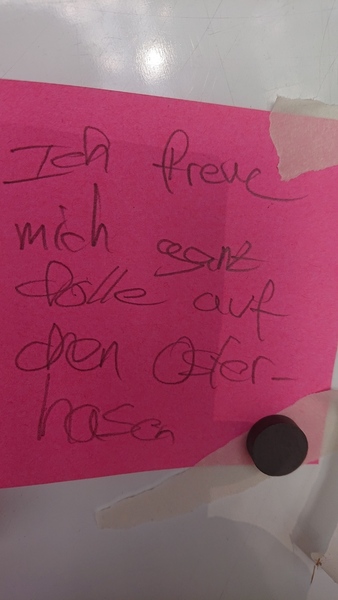 Ich freue
mich ganz
dolle auf
den Oster-
hasen